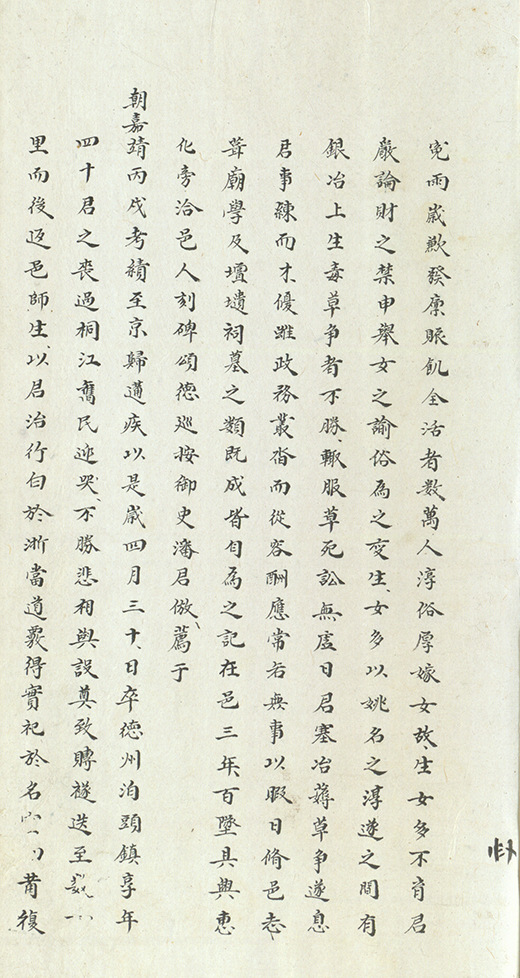 寃雨歲歉發廩賑飢全活者數萬人淳俗厚嫁女故生女多不育君
嚴論財之禁申舉女之諭俗為之变生女多以姚名之淳遂之間有
銀冶上生毒草争者不勝輙服草死訟無虛日君塞冶薅草争遂息
君事練而才優雖政務叢沓而從容酬應常若無事以暇日脩邑志
葺廟學及壇壝祠墓之類既成皆自為之記在邑三年百墜具興惠
化旁洽邑人刻碑頌德巡按御史潘君倣薦于
朝嘉靖丙戌考績至京歸遘疾以是歲四月三十日卒德州泊頭鎮享年
四十君之喪過桐江舊民迎哭不勝悲相與設奠致賻襚送至
里而後返邑師生以君治行白於浙當道覈得實祀於名 莆復